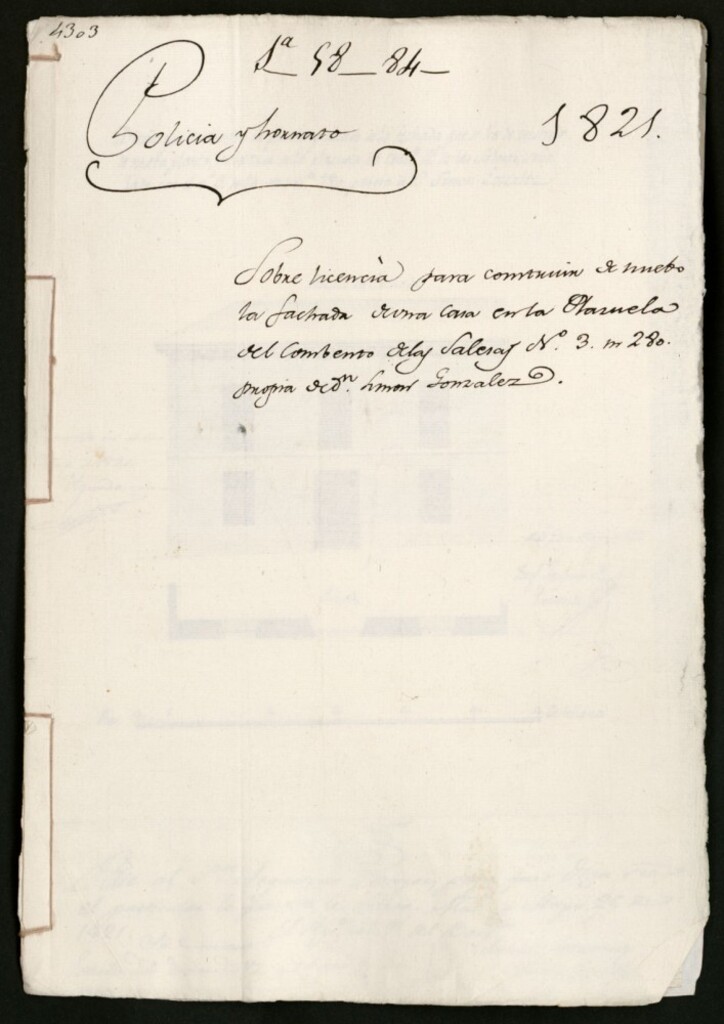 4303
1ª 58-84-
Policia y hornato 1821.
Sobre licencia para construir de nuebo
la fachada de una casa en la Plazuela
del Combento de las Salesas Nº 3. m 280.
propia de Dn. Simon Gonzalez.